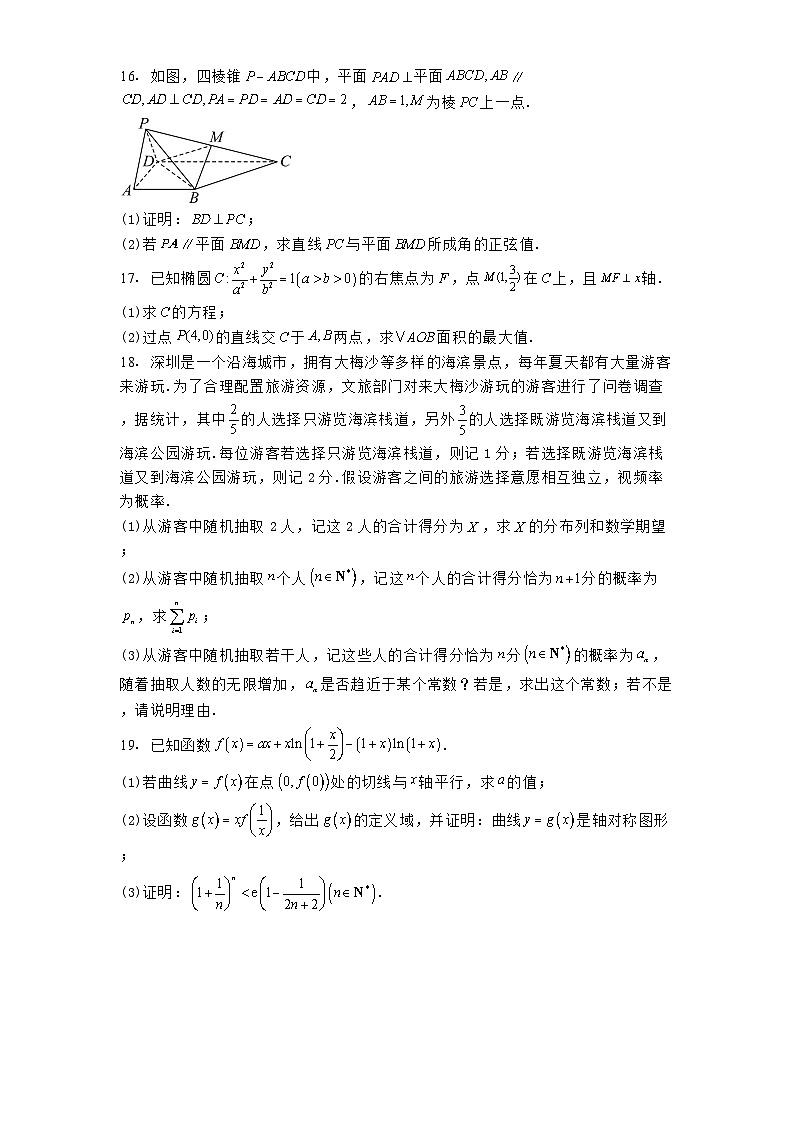 16. 如图, 四棱锥 P − ABCD中, 平面 PAD ⊥平面 ABCD, AB ∥
CD, AD ⊥ CD, PA = PD = AD = CD = 2 , AB = 1, M 为棱 PC上一点.
P
M
D
C
A
B
(1)证明: BD ⊥ PC;
(2)若 PA ∥ 平面 BMD, 求直线 PC与平面 BMD所成角的正弦值.
17. 已知椭圆 C : x²/a² + y²/b² = 1(a > b > 0)的右焦点为 F, 点 M(1, 3/2) 在 C上, 且 MF ⊥ x轴.
(1)求 C的方程;
(2)过点 P(4,0)的直线交 C于 A, B两点, 求∨AOB面积的最大值.
18. 深圳是一个沿海城市, 拥有大梅沙等多样的海滨景点, 每年夏天都有大量游客
来游玩.为了合理配置旅游资源, 文旅部门对来大梅沙游玩的游客进行了问卷调查
, 据统计, 其中 2/5 的人选择只游览海滨栈道, 另外 3/5 的人选择既游览海滨栈道又到
海滨公园游玩.每位游客若选择只游览海滨栈道, 则记 1 分; 若选择既游览海滨栈
道又到海滨公园游玩, 则记 2 分.假设游客之间的旅游选择意愿相互独立, 视频率
为概率.
(1)从游客中随机抽取 2 人, 记这 2 人的合计得分为 X , 求 X 的分布列和数学期望
;
(2)从游客中随机抽取 n个人 (n ∈ N*), 记这 n个人的合计得分恰为 n+1分的概率为
pₙ, 求 ∑ⁿᵢ₌₁ pᵢ ;
(3)从游客中随机抽取若干人, 记这些人的合计得分恰为 n分 (n ∈ N*) 的概率为 aₙ,
随着抽取人数的无限增加, aₙ是否趋近于某个常数? 若是, 求出这个常数; 若不是
, 请说明理由.
19. 已知函数 f(x) = ax + xln(1 + x/2) − (1 + x)ln(1 + x).
(1)若曲线 y = f(x)在点 (0, f(0))处的切线与 x轴平行, 求 a的值;
(2)设函数 g(x) = xf(1/x), 给出 g(x)的定义域, 并证明: 曲线 y = g(x)是轴对称图形
;
(3)证明: (1 + 1/n)ⁿ < e(1 − 1/(2n + 2))(n ∈ N*).